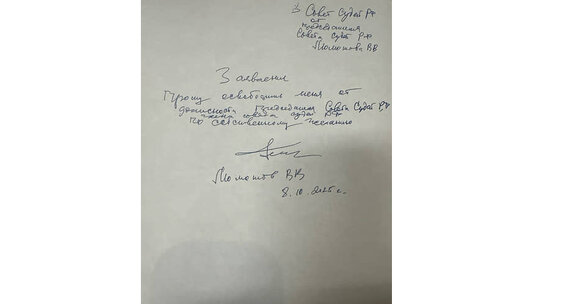 В Совет Судей РФ
от
председателя
Совета судей РФ
Момотова ВВ
Заявление
Прошу освободить меня от
должности Председателя Совета Судей РФ
члена совета судей РФ
по собственному желанию
Момотов ВВ
8.10.2025 г.